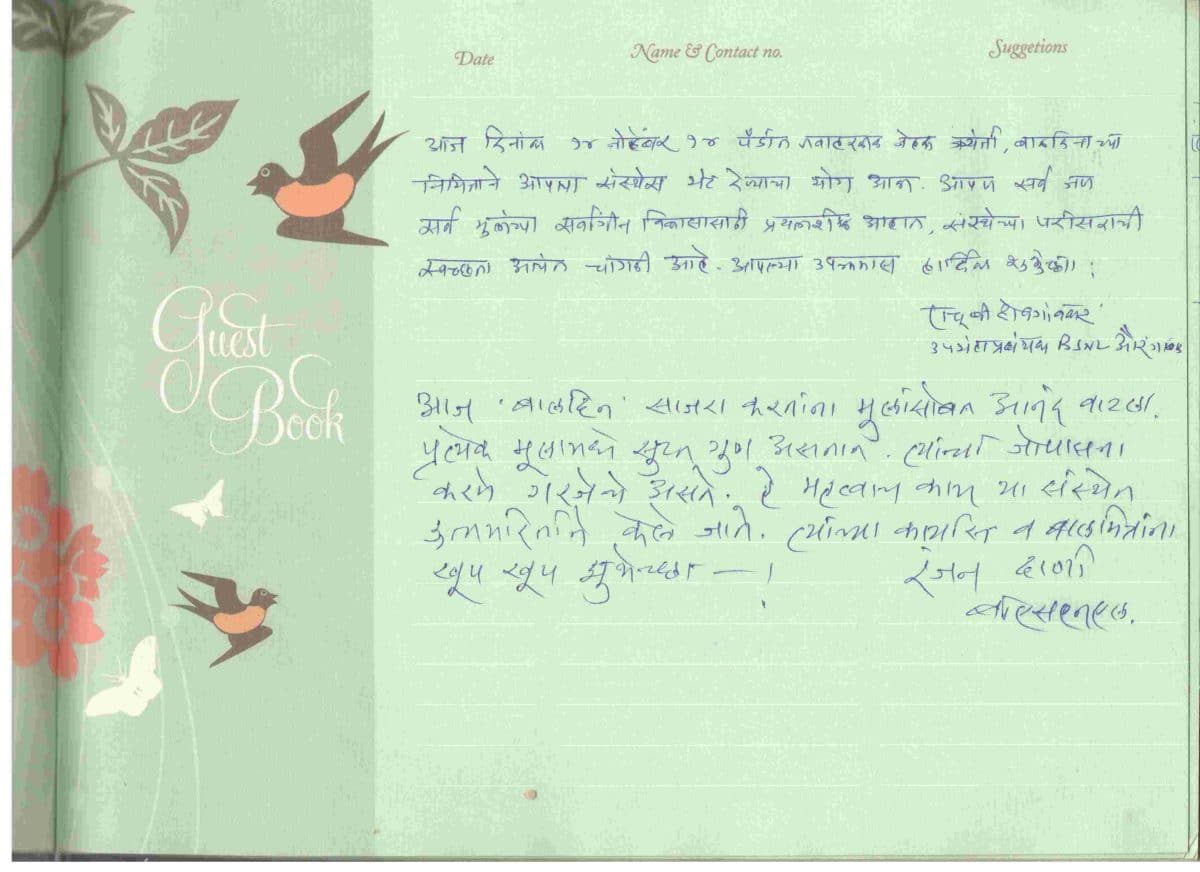 Date Name & Contact no. Suggetions
आज दिनांक १४ नोव्हेंबर १४ पंडीत जवाहरलाल नेहरू जयंती, बालदिनाच्या
निमित्ताने आपल्या संस्थेस भेट देण्याचा योग आला. आपण सर्व जण
सर्व मुलांच्या सर्वांगीन विकासासाठी प्रयत्नशील आहात, संस्थेच्या परीसराची
स्वच्छता अत्यंत चांगली आहे. आपल्या उपक्रमास हार्दिक शुभेच्छा।
उपमहाप्रबंधक BSNL औरंगाबाद
आज 'बालदिन' साजरा करतांना मूलांसोबत आनंद वाटला.
प्रत्येक मूलामध्ये सुप्त गुण असतात. त्यांची जोपासना
करणे गरजेचे असते. हे महत्वाचे काम या संस्थेत
उत्तमरितीने केले जाते. त्यांच्या कार्यास व बालमित्रांना
खूप खूप शुभेच्छा —! रंजन दाणी
बीएसएनएल.
Guest
Book